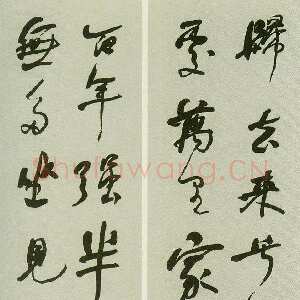 歸去来兮
處萬里家
百年强半
無多坐見
Shufawang.CN